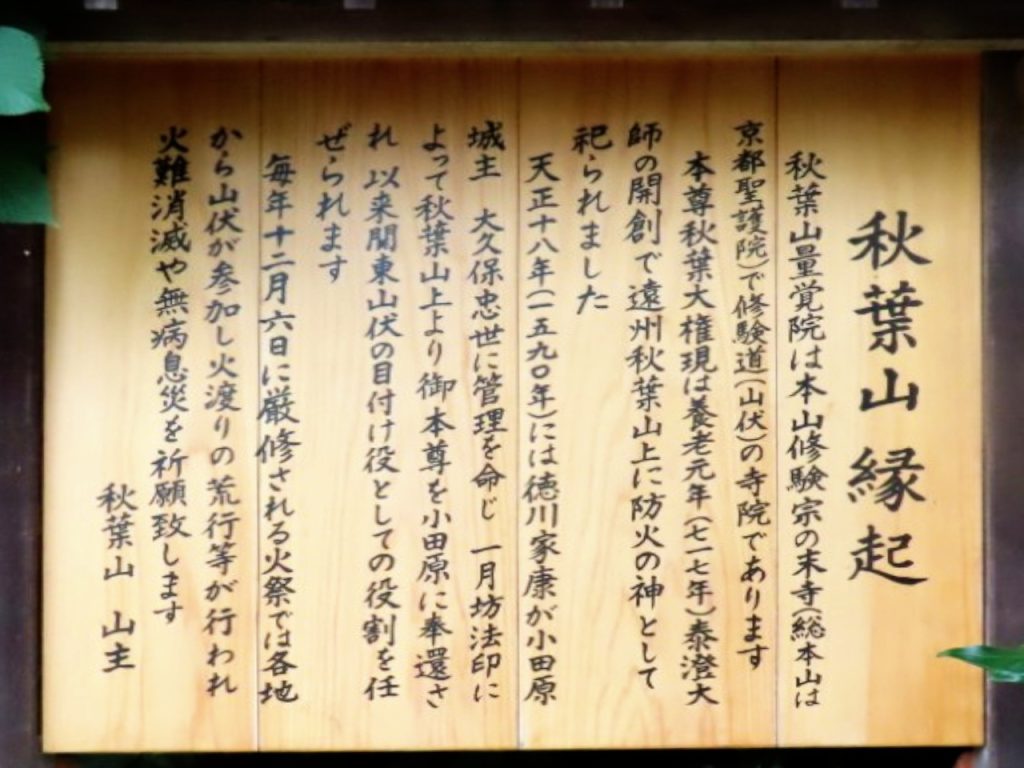 秋葉山縁起
秋葉山量覚院は本山修験宗の末寺(総本山は
京都聖護院)で修験道(山伏)の寺院であります
本尊秋葉大権現は養老元年(七一七年)泰澄大
師の開創で遠州秋葉山上に防火の神として
祀られました
天正十八年(一五九〇年)には徳川家康が小田原
城主 大久保忠世に管理を命じ 一月坊法印に
よって秋葉山上より御本尊を小田原に奉還さ
れ 以来関東山伏の目付け役としての役割を任
ぜられます
毎年十二月六日に厳修される火祭では各地
から山伏が参加し火渡りの荒行等が行われ
火難消滅や無病息災を祈願致します
秋葉山 山主